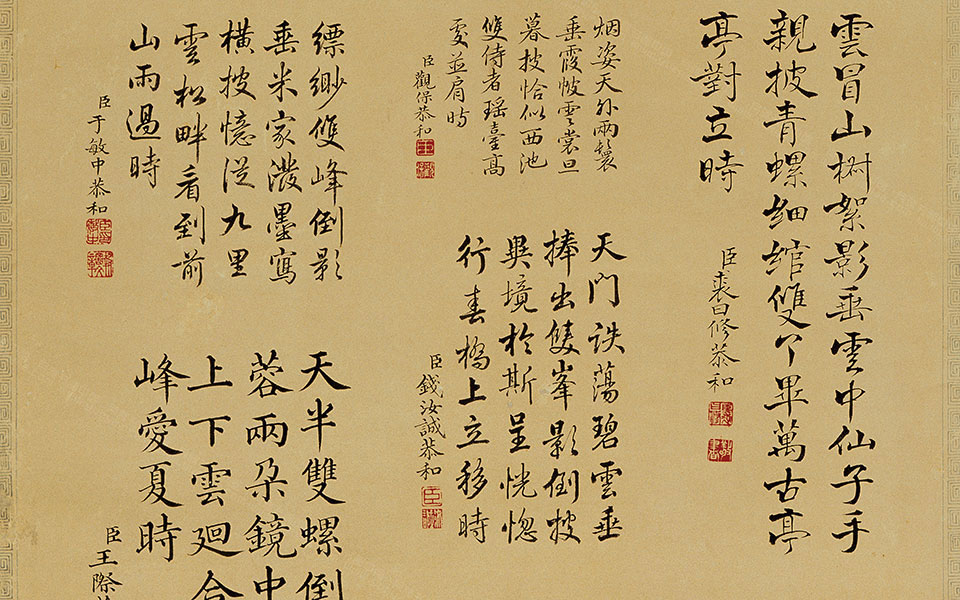 雲冒山樹絮影垂雲中仙子手
親披青螺細綰雙丫畢萬古亭
亭對立時
臣裘曰修恭和
烟姿天外兩鬟
垂霞帔雲裳旦
暮披恰似西池
雙侍者瑤臺高
處並肩時
臣觀保恭和
天門詄蕩碧雲垂
捧出雙峯影倒披
異境於斯呈恍惚
行春橋上立移時
臣錢汝誠恭和
縹緲雙峰倒影
垂米家潑墨寫
橫披憶從九里
雲松畔看到前
山雨過時
臣于敏中恭和
天半雙螺倒
蓉兩朵鏡中
上下雲迴合
峰愛夏時
臣王際